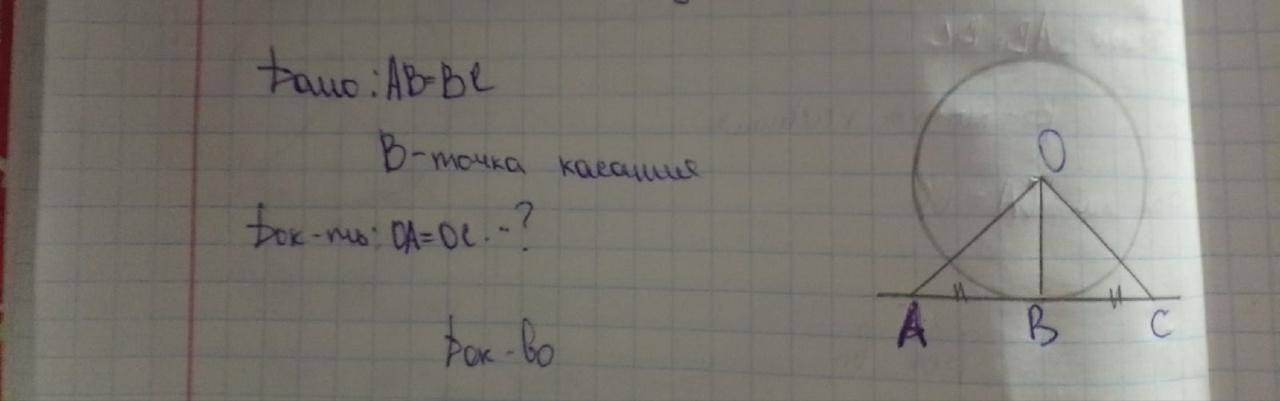 Дано: AB=BC
B-точка касания
Док-ть: OA=OC.-?
Док-во
O
A B C